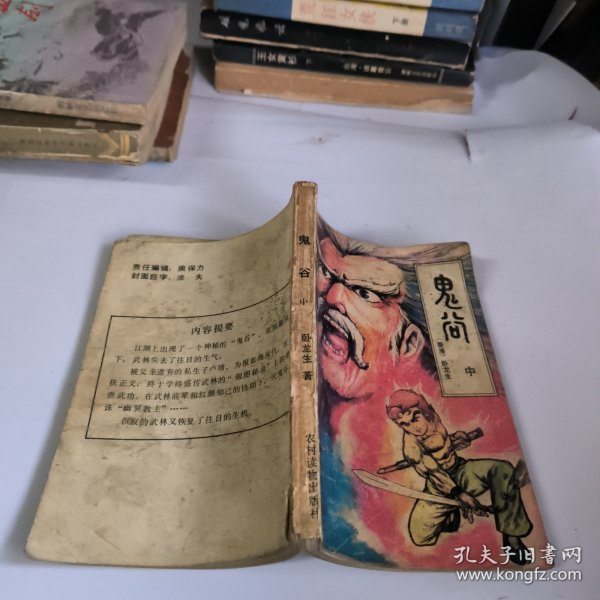 责任编辑：庞保力
封面题字：涂夫
内容提要
江湖上出现了一个神秘的“鬼谷”，
下，武林失去了往日的生气。
被父亲遗弃的私生子卢靖，为报血海深仇，
扶正义，终于学得盛传武林的
世武功。在武林前辈和红颜知己的协助下，
诛“幽冥教主”……
沉寂的武林又恢复了往日的生机。
鬼谷
中
卧龙生 著
农村读物出版社
鬼谷
中
（香港）卧龙生
下册
玉女黄衫 下
孔夫子旧书网
www.kongfz.com